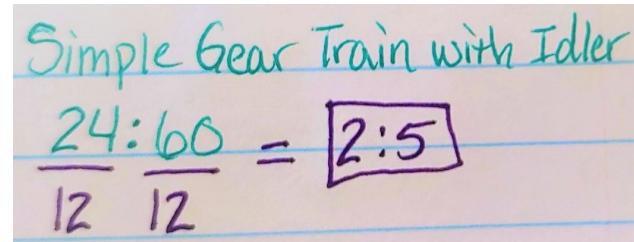 Simple Gear Train with Idler
24:60 = 2:5
12 12